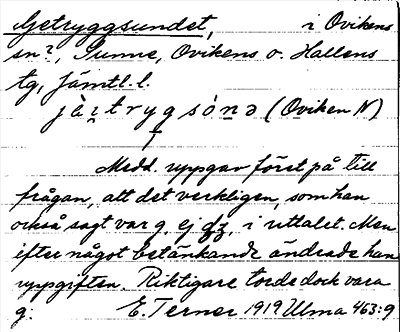 Getryggsundet, i Ovikens
sn?, Sunne, Ovikens o. Hallens
tg, Jämtl. l.
jä̀ṭrygsónə (Oviken N)
Medd. uppgav först på till
frågan, att det verkligen, som han
också sagt var g, ej dz, i uttalet. Men
efter något betänkande ändrade han
uppgiften. Riktigare torde dock vara
g. E. Terner 1919 Ulma 463:9